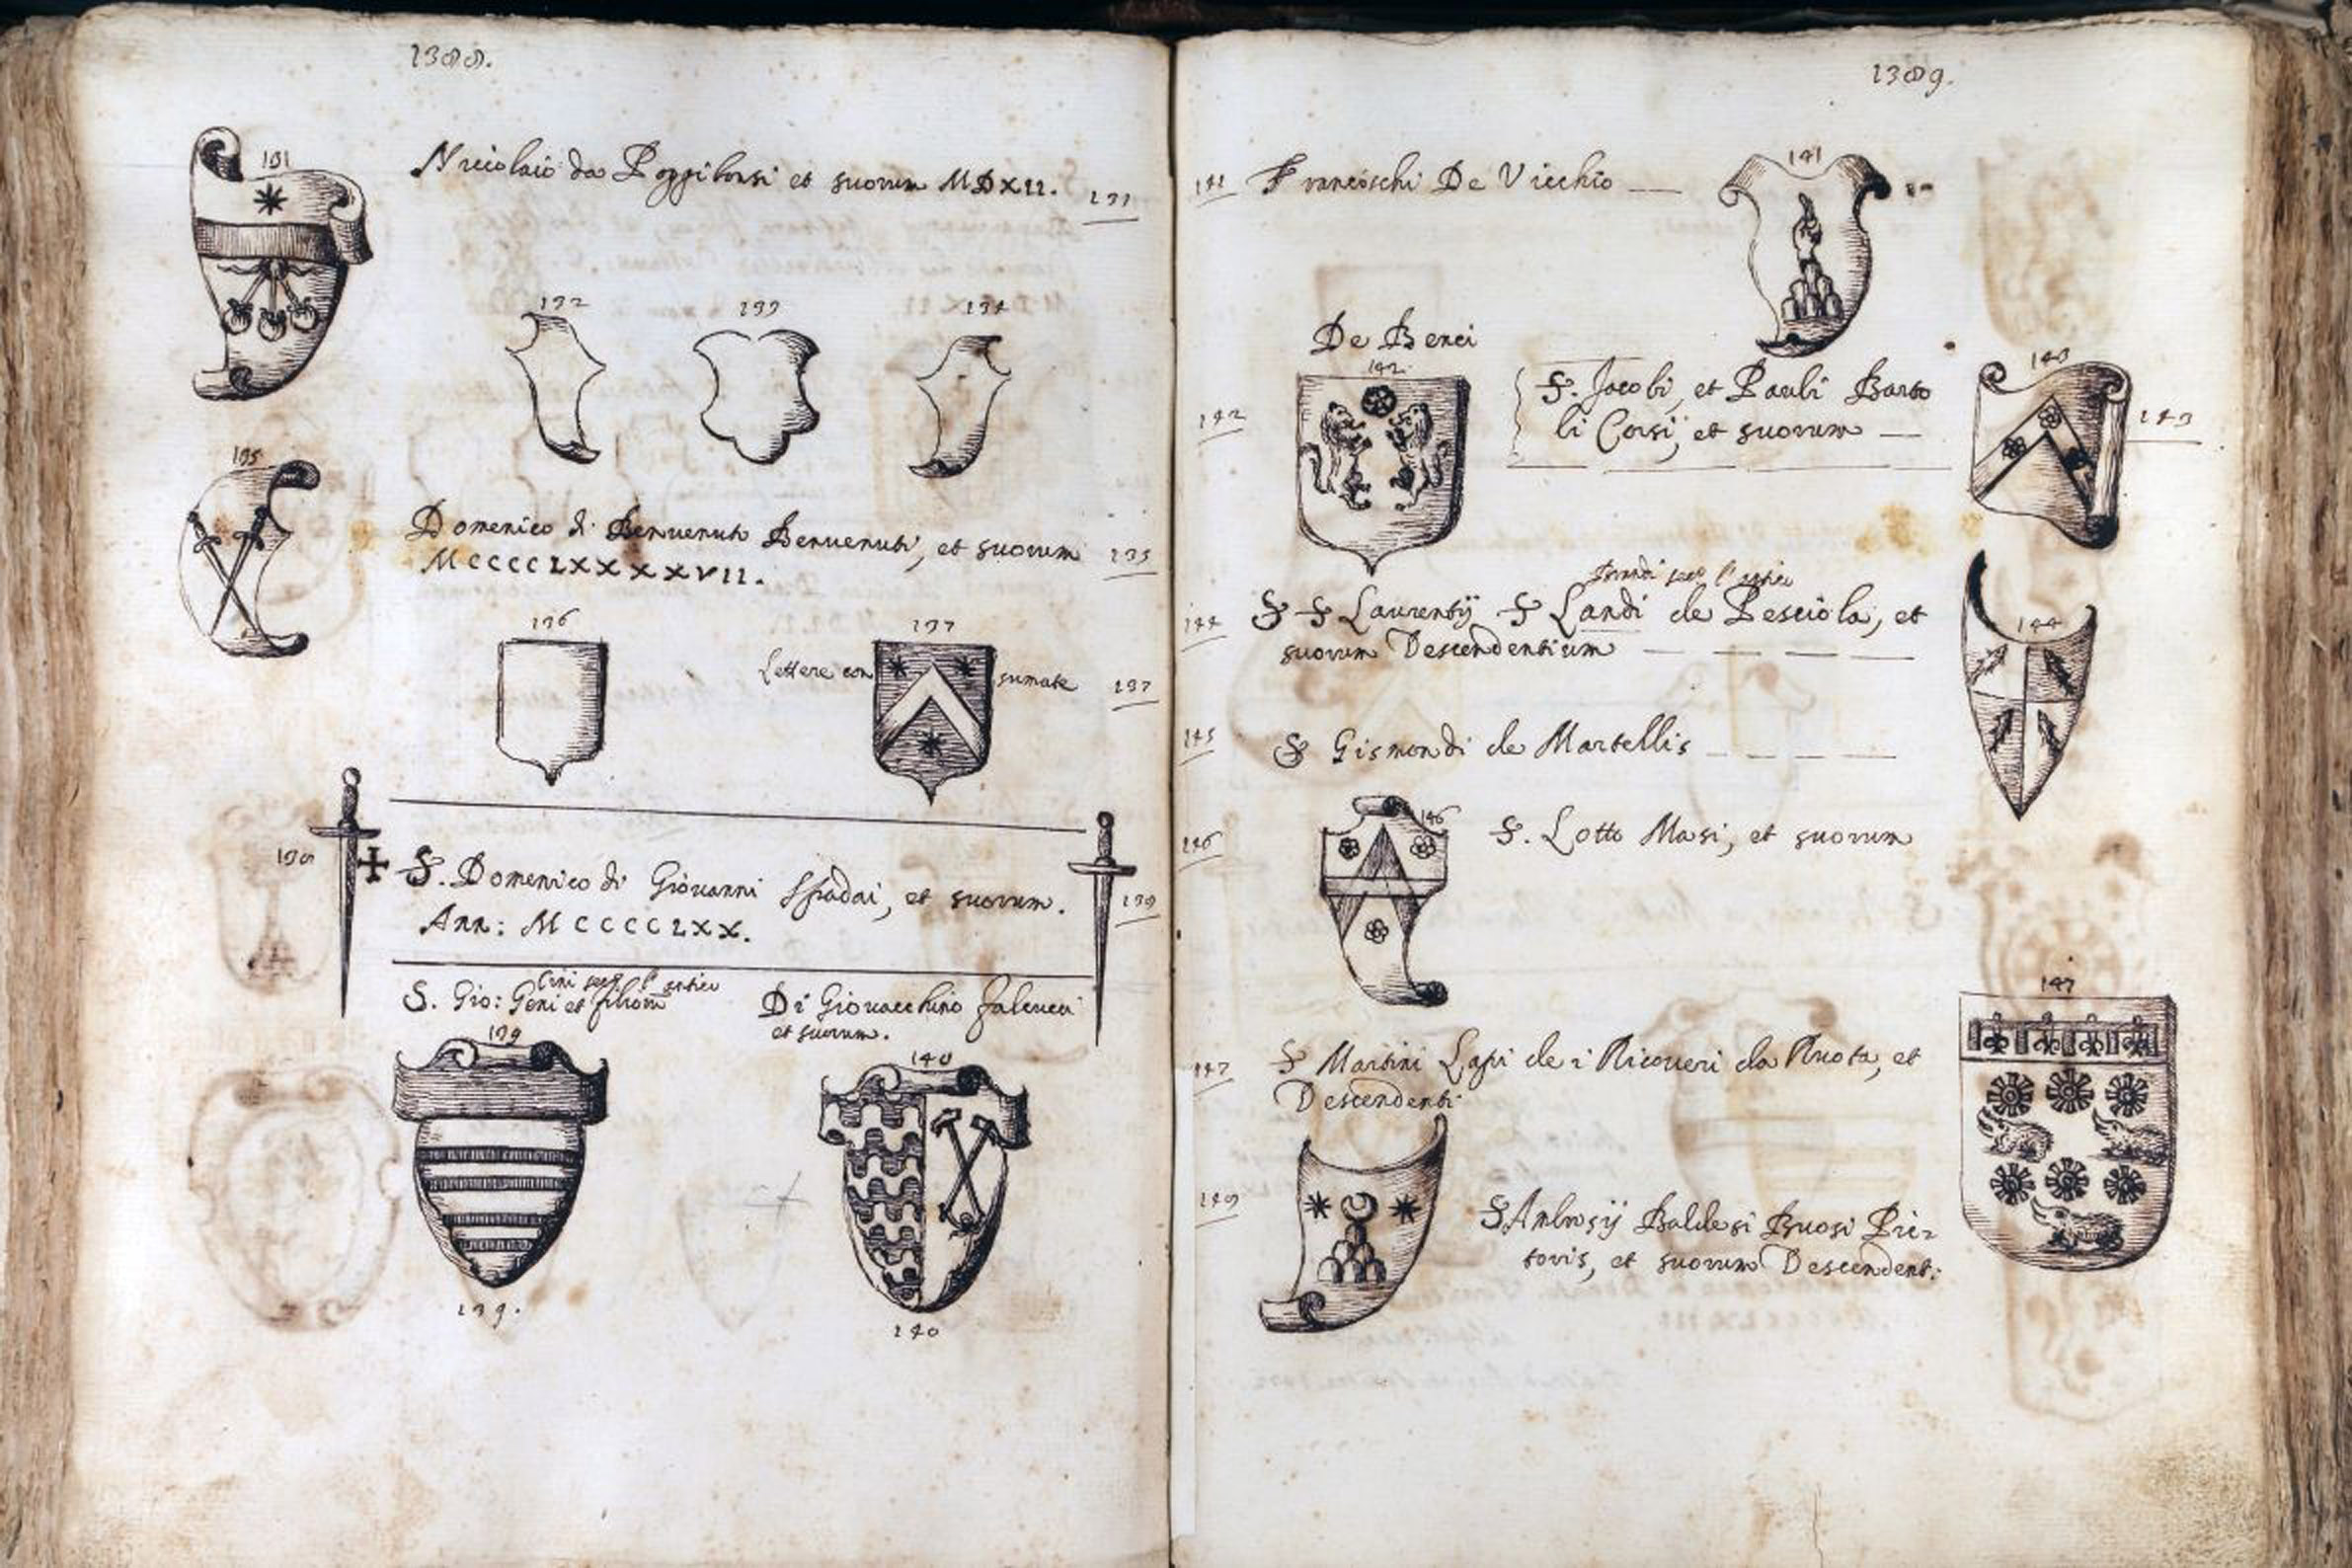 1388.
131
Niccolaio da Poggibonsi et suorum MDXII. 131
132 133 134
135
Domenico di Benvenuto Benvenuti, et suorum 135
MCCCCLXXXXVII.
136 137
Lettere con sumate 137
138 S. Domenico di Giovanni Spadai, et suorum. 138
Ann: MCCCCLXX.
Cini sec. l'antico
S. Gio: Geni et filiorum
139
Di Giovacchino Falcucci
et suorum.
140
139.
140
1389.
141 Franceschi De Vicchio 141
De Benci
142
142
S. Jacobi, et Pauli Barto
li Corsi, et suorum
143
143
l'antico
144 S S Laurentij S Landi de Pesciola, et
suorum Descendentium
144
145 S Gismondi de Martellis
146
146 S. Lotto Masi, et suorum
147
147 S Martini Lapi de i Ricoveri da Ruota, et
Descendenti
148 S Ambrosij Baldesi Buosi Pic=
toris, et suorum Descendent: